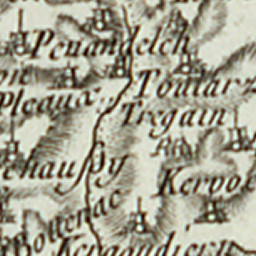 Penandelch
Toular
Pleaux
Tregain
ehaussy
Kervo
Bottenac
Kergoudieru